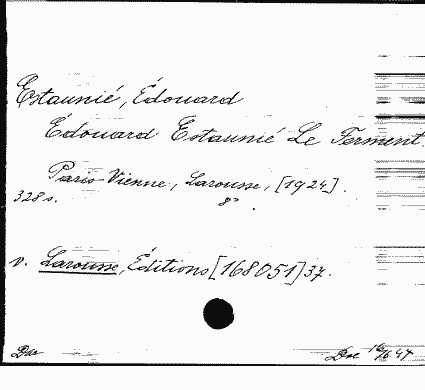 Estaunié, Édouard
Édouard Estaunié Le Ferment.
Paris-Vienne, Larousse, [1924].
328 s. 8°
v. Larousse, Éditions [168051] 37.